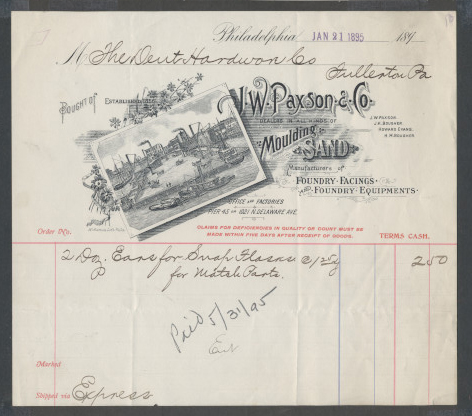 Philadelphia JAN 21 1895 189
M The Dent Hardware Co
Fullerton Pa
BOUGHT OF
ESTABLISHED
J.W. PAXSON & Co.
DEALERS IN ALL KINDS OF
Moulding SAND
J.W. PAXSON
HOWARD EVANS
Manufacturers of
FOUNDRY FACINGS
AND FOUNDRY EQUIPMENTS
OFFICE AND FACTORIES
PIER 45 TO 1021 N. DELAWARE AVE.
CLAIMS FOR DEFICIENCIES IN QUALITY OR COUNT MUST BE
MADE WITHIN FIVE DAYS AFTER RECEIPT OF GOODS.
Order No.
TERMS CASH.
2 Doz. Ears for Snap Flasks @ 1 25 2 50
for Match Parts.
Paid 5/31/95
Marked
Shipped via Express